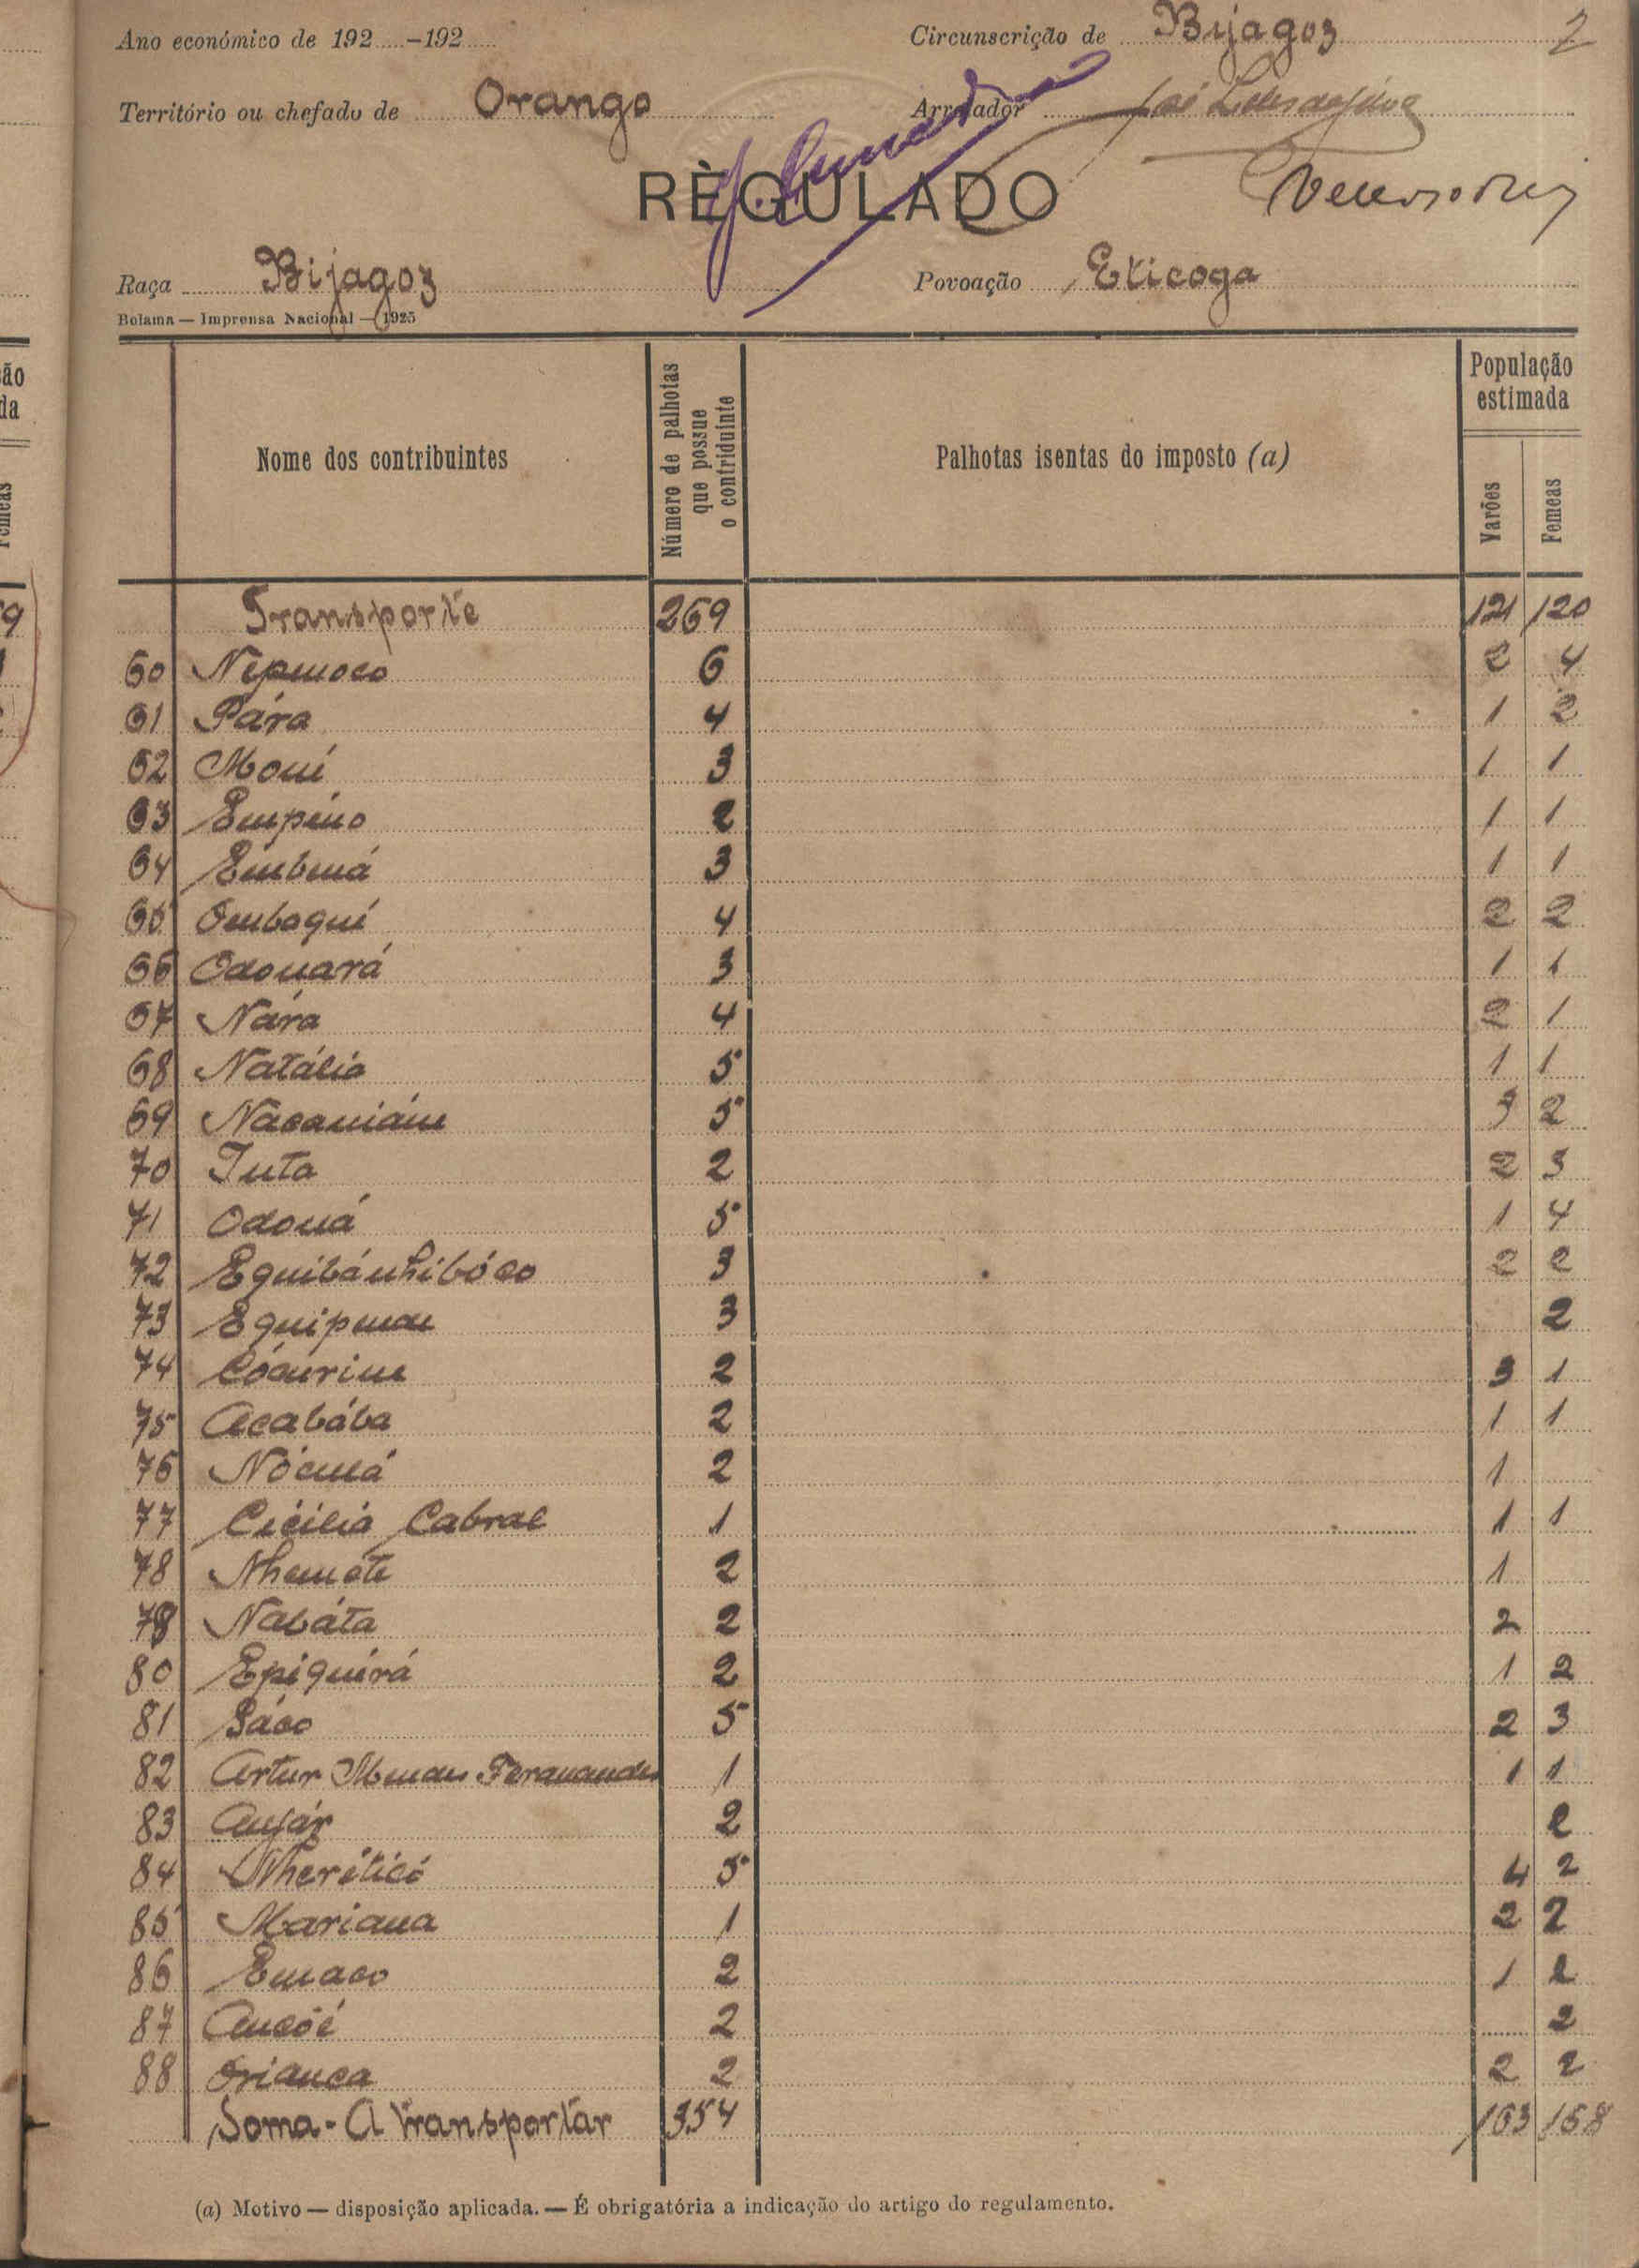 Ano económico de 192.....-192..... Circunscrição de Bijagoz 2
Território ou chefado de Orango Arrolador
RÈGULADO
Raça Bijagoz Povoação Eticoga
Bolama — Imprensa Nacional — 1925
Nome dos contribuintes Número de palhotas que possue o contriduinte Palhotas isentas do imposto (a) População estimada Varões Femeas
Transporte 269 121 120
60 6 2 4
61 Pára 4 1 2
62 Moní 3 1 1
63 Empino 2 1 1
64 3 1 1
65 Ombaqui 4 2 2
66 Odouará 3 1 1
67 Nára 4 2 1
68 Natália 5 1 1
69 Nacaniám 5 3 2
70 Tuta 2 2 3
71 Odoná 5 1 4
72 Equibánhibóco 3 2 2
73 3 2
74 Cócurim 2 3 1
75 Acabába 2 1 1
76 2 1
77 Cicilia Cabral 1 1 1
78 Nhemete 2 1
79 Nabáta 2 2
80 Epiquirá 2 1 2
81 5 2 3
82 Artur Mendes Feranandes 1 1 1
83 2 2
84 Nheriticó 5 4 2
85 Mariana 1 2 2
86 Emaco 2 1 2
87 2 2
88 Orianca 2 2 2
Soma - A transportar 354 163 168
(a) Motivo — disposição aplicada. — É obrigatória a indicação do artigo do regulamento.